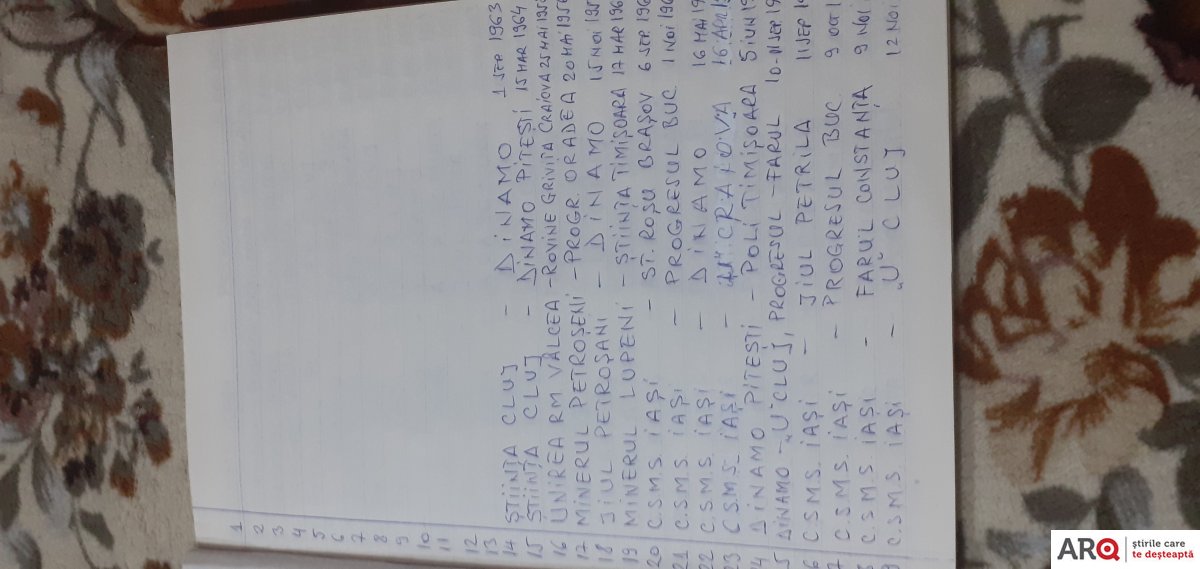 1
2
3
4
5
6
7
8
9
10
11
12
13
14 ȘTIINȚA CLUJ - DINAMO 1 SEP 1963
15 ȘTIINȚA CLUJ - DINAMO PITEȘTI 15 MAR 1964
16 UNIREA RM VÂLCEA - ROVINE GRIVIȚA CRAIOVA 25 MAI 195
17 MINERUL PETROȘENI - PROGR. ORADEA 20 MAI 1956
18 JIUL PETROȘANI - DINAMO 15 NOI 195
19 MINERUL LUPENI - ȘTIINȚA TIMIȘOARA 17 MAR 196
20 C.S.M.S. IAȘI - ST. ROȘU BRAȘOV 6 SEP 196
21 C.S.M.S. IAȘI - PROGRESUL BUC 1 NOI 196
22 C.S.M.S. IAȘI - DINAMO 16 MAI 19
23 C.S.M.S. IAȘI - "U" CRAIOVA 16 APR 1
4 DINAMO PITEȘTI - POLI TIMIȘOARA 5 IUN 19
5 DINAMO - "U" CLUJ, PROGRESUL - FARUL 10-11 SEP. 19
6 C.S.M.S. IAȘI - JIUL PETRILA 11 SEP 1
7 C.S.M.S. IAȘI - PROGRESUL BUC. 9 OCT 1
8 C.S.M.S. IAȘI - FARUL CONSTANȚA 9 NOI
9 C.S.M.S. IAȘI - "U" CLUJ 12 NOI
ARQ știrile care
te deșteaptă